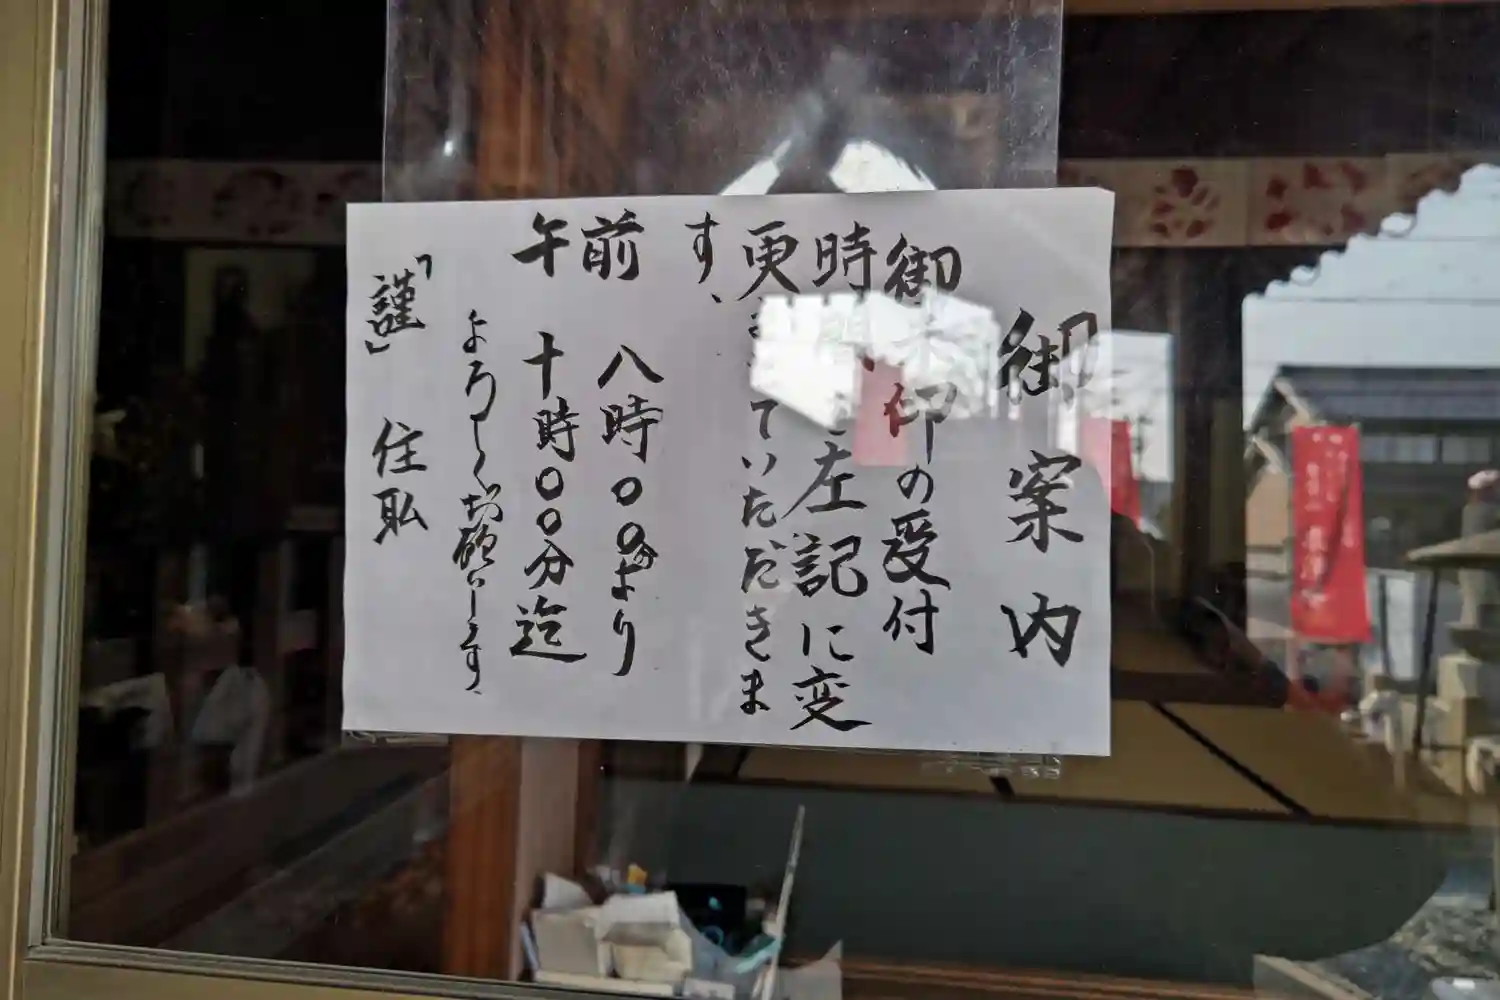 御案内
御朱印の受付
時間を左記に変
更させていただきま
す、
前 八時〇〇分より
午 十時〇〇分迄
よろしくお願いします、
「謹」 住職